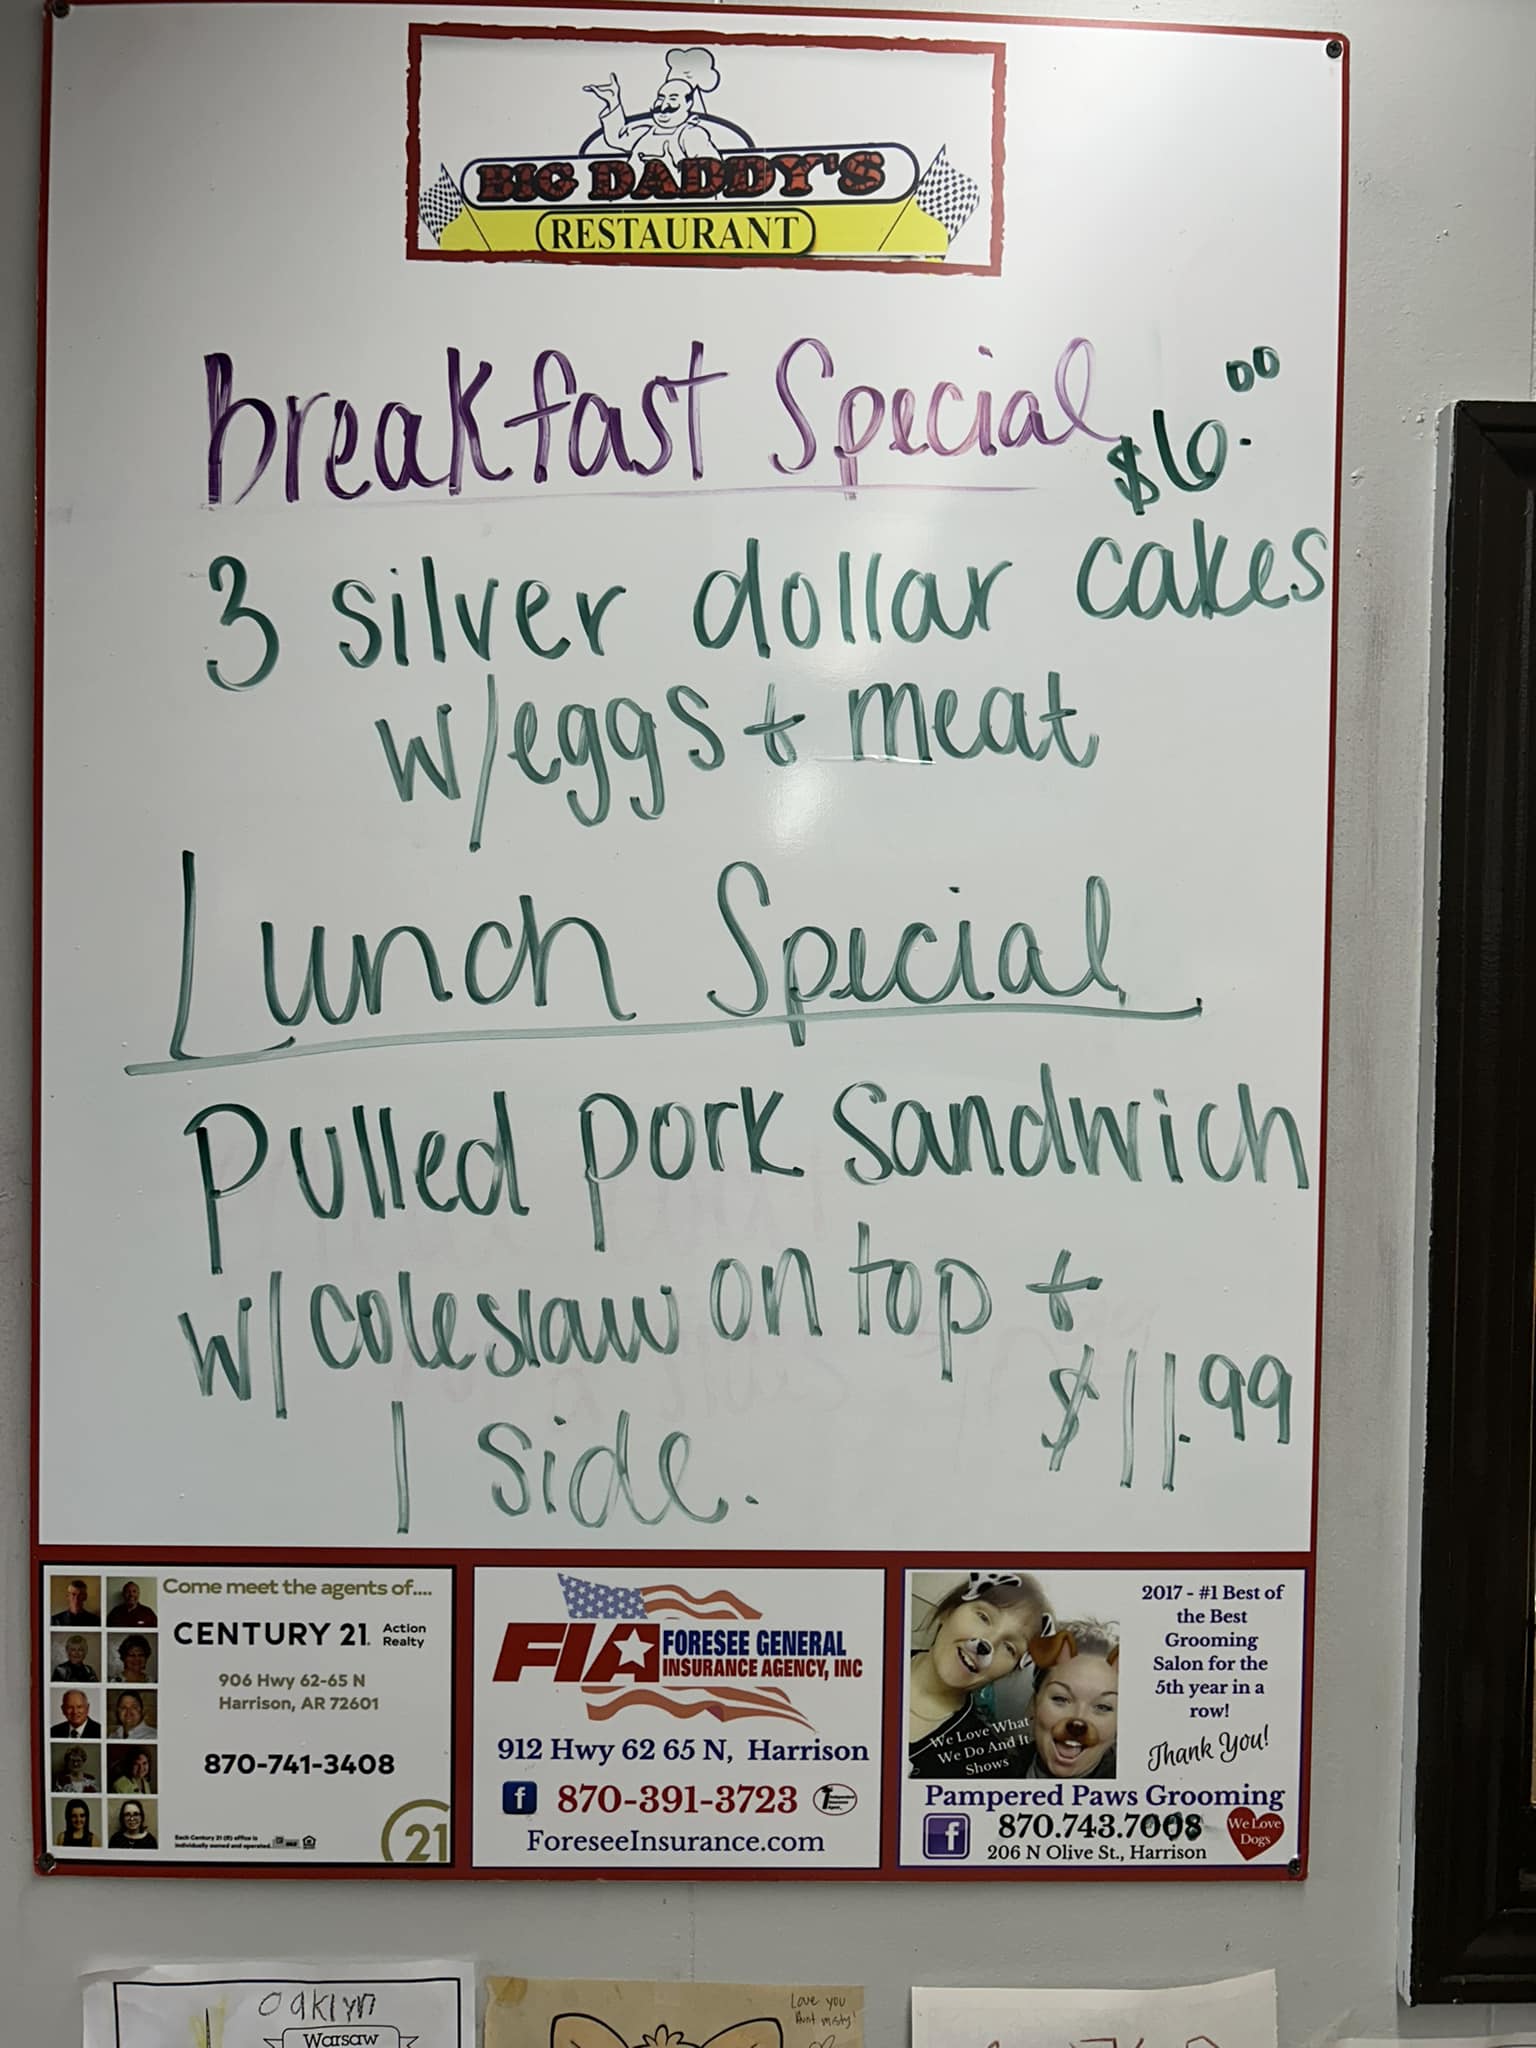 BIG DADDY'S
RESTAURANT
Breakfast Special
$6.00
3 silver dollar cakes
w/eggs + meat
Lunch Special
Pulled pork sandwich
w/coleslaw on top +
1 side.
$11.99
Come meet the agents of....
CENTURY 21. Action Realty
906 Hwy 62-65 N
Harrison, AR 72601
870-741-3408
Each Century 21 (R) office is
individually owned and operated.
21
FIA FORESEE GENERAL
INSURANCE AGENCY, INC
912 Hwy 62 65 N, Harrison
f 870-391-3723
ForeseeInsurance.com
We Love What
We Do And It
Shows
2017 - #1 Best of
the Best
Grooming
Salon for the
5th year in a
row!
Thank You!
Pampered Paws Grooming
f 870.743.7008
206 N Olive St., Harrison
We Love
Dogs
Oaklyn
Warsaw
Love you
Aunt misty!